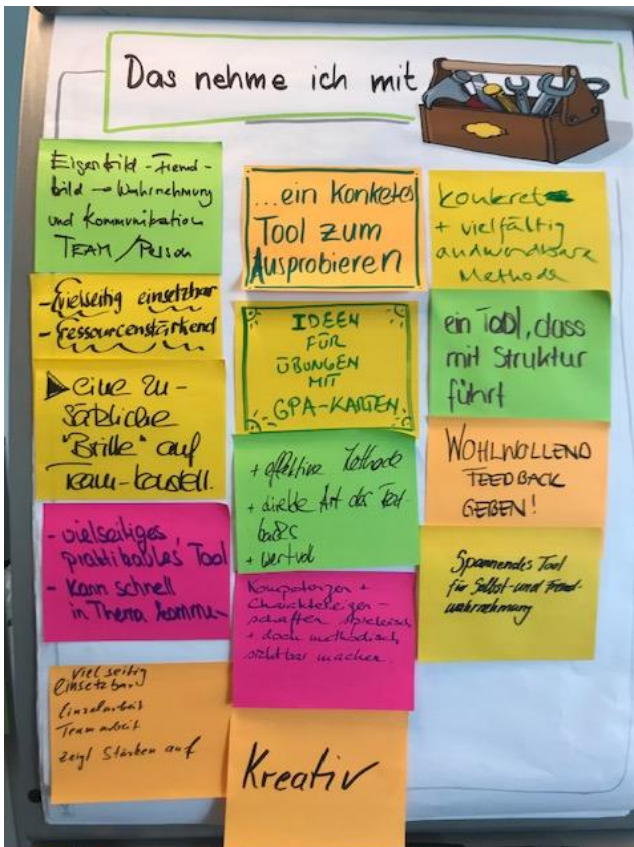 Das nehme ich mit
Eigenbild - Fremd-
bild → Wahrnehmung
und Kommunikation
TEAM / Person
- vielseitig einsetzbar
- ressourcenstärkend
▶ eine zu-
sätzliche
"Brille" auf
Team-konstell.
- vielseitiges
praktikables Tool
- kann schnell
in Thema kommen
vielseitig
einsetzbar
Einzelarbeit
Teamarbeit
zeigt Stärken auf
...ein konketes
Tool zum
Ausprobieren
IDEEN
FÜR
ÜBUNGEN
MIT
GPA-KARTEN
+ effektive Methode
+ direkte Art des Feed-
backs
+ wertvol
Kompetenzen +
Charaktereigen-
schaften spielerisch
+ doch methodisch
sichtbar machen.
Kreativ
konkret
+ vielfältig
andwendbare
Methode
ein Tool, dass
mit Struktur
führt
WOHLWOLLEND
FEEDBACK
GEBEN!
Spannendes Tool
für Selbst- und Fremd-
wahrnehmung